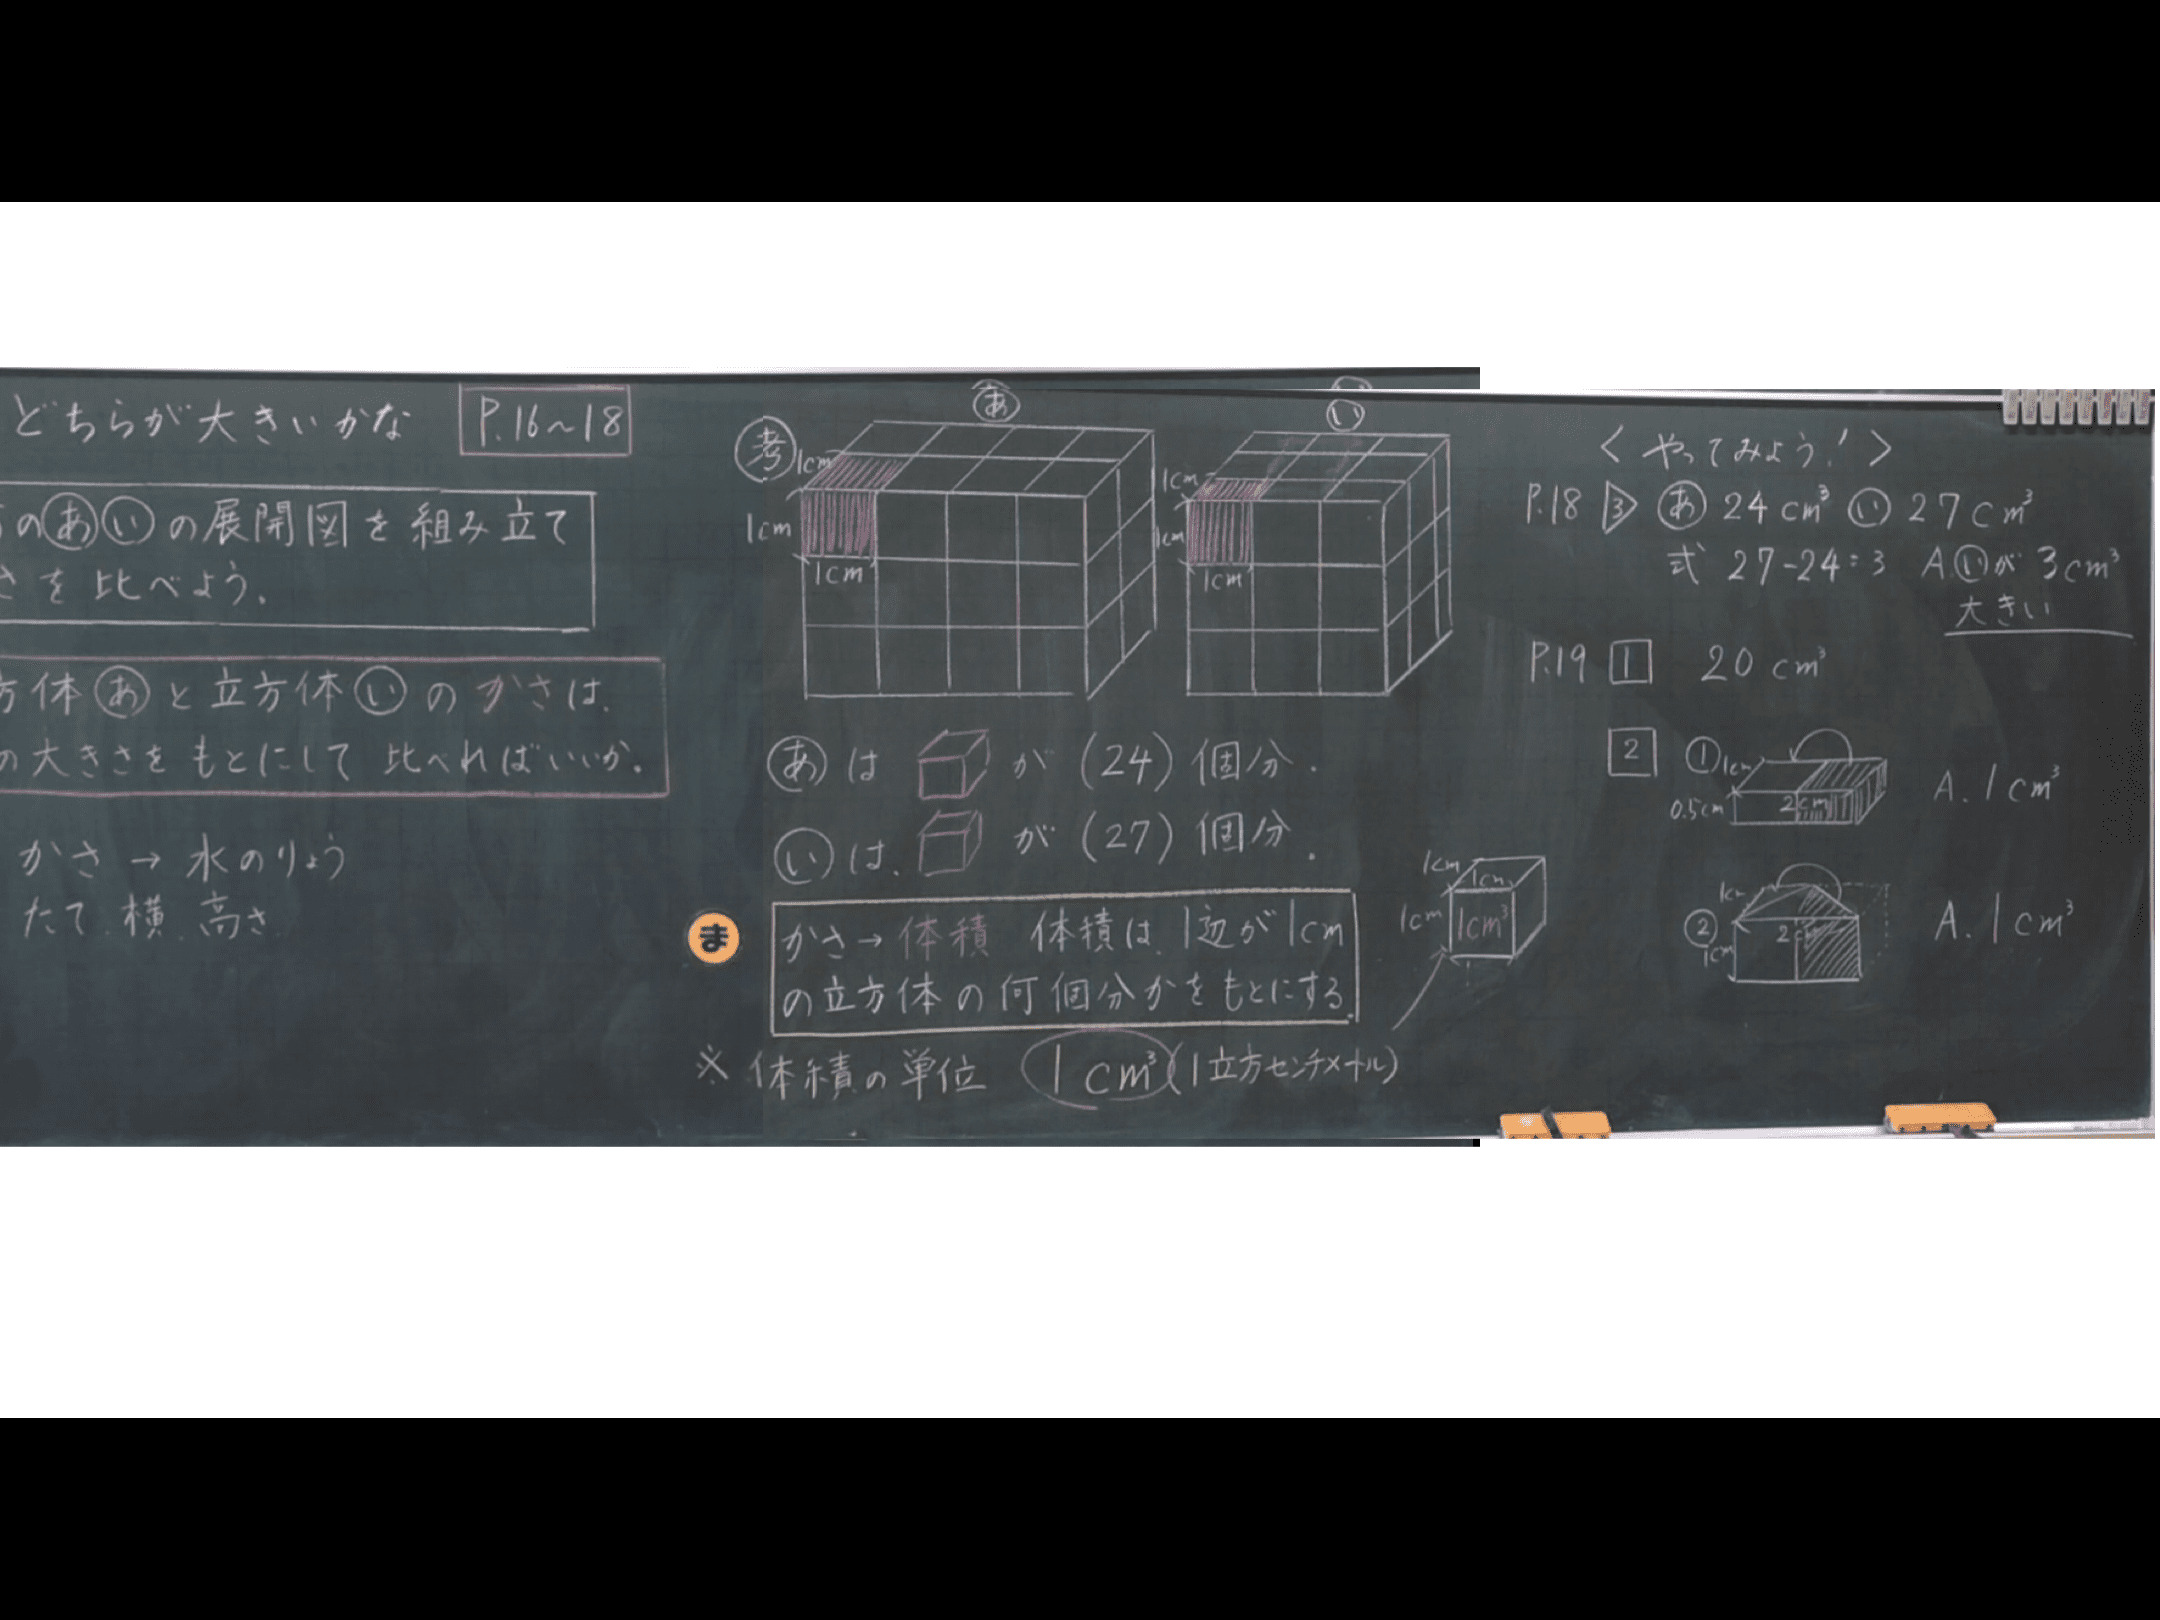 どちらが大きいかな P.16~18
のあいの展開図を組み立て
さを比べよう.
方体あと立方体いのかさは.
の大きさをもとにして比べればいいか.
かさ→水のりょう
たて.横.高さ
考
あ
1cm
1cm
1cm
い
1cm
1cm
1cm
あは が (24) 個分.
いは. が (27) 個分.
ま
かさ→体積 体積は1辺が1cm
の立方体の何個分かをもとにする.
※体積の単位 1cm³(1立方センチメートル)
1cm
1cm
1cm
1cm³
<やってみよう!>
P.18 3 あ 24cm³ い 27cm³
式 27-24=3 A.いが3cm³
大きい
P.19 1 20cm³
2 ① 1cm
0.5cm 2cm
A.1cm³
② 1cm
1cm 2cm
A.1cm³